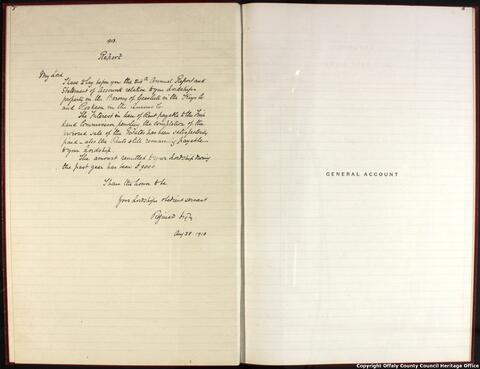 1918.
Report
My Lord
I have to lay before you the Annual Report and
Statement of Account relative to your Lordship's
property in the Barony of Geashill in the King's Co
and in the Queens Co
The Interest in lieu of Rent payable to the Irish
Land Commission pending the completion of the
sale of the Estates has been satisfactorily
paid - also the Rents still remaining payable
to your Lordship.
The amount remitted to your Lordship during
the past year has been
I have the honor to be
Your Lordships obedient servant
Reginald Digby
Aug 28. 1918
GENERAL ACCOUNT
Copyright Offaly County Council Heritage Office